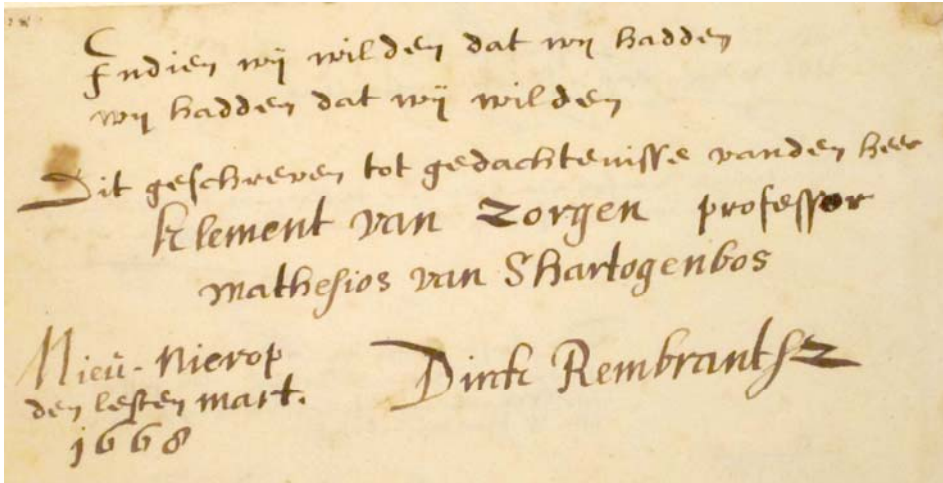 Indien wij wilden dat wij hadden
wij hadden dat wij wilden
Dit geschreven tot gedachtenisse vanden heer
Klement van Zorgen professor
mathesios van Shartogenbos
Nieu-Nierop
den lesten mart.
1668
Dirck Rembrantsz